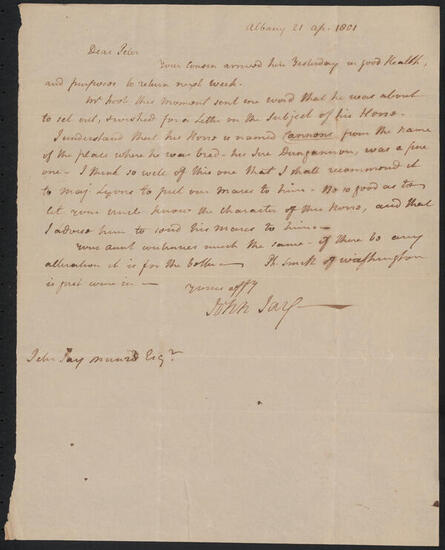 Albany 21 Ap. 1801
Dear Peter
Your Cousin arrived here Yesterday in good Health,
and purposes to return next week.
Mr this moment sent me word that he was about
to set out, & wished for a Letter on the Subject of his Horse.
I understand that his Horse is named Cannons from the name
of the place where he was bred - his Sire Dungannon, was a fine
one - I think so well of this one that I shall recommend it
to Maj. Lyons to put our mares to him - Be so good as to
let your uncle know the character of this Horse, and that
I advise him to send his mares to him. -
Your aunt continues much the same - if there be any
alteration it is for the better - The of Washington
is just come in -
Yours affy
John Jay
Peter Jay Munro Esqr.